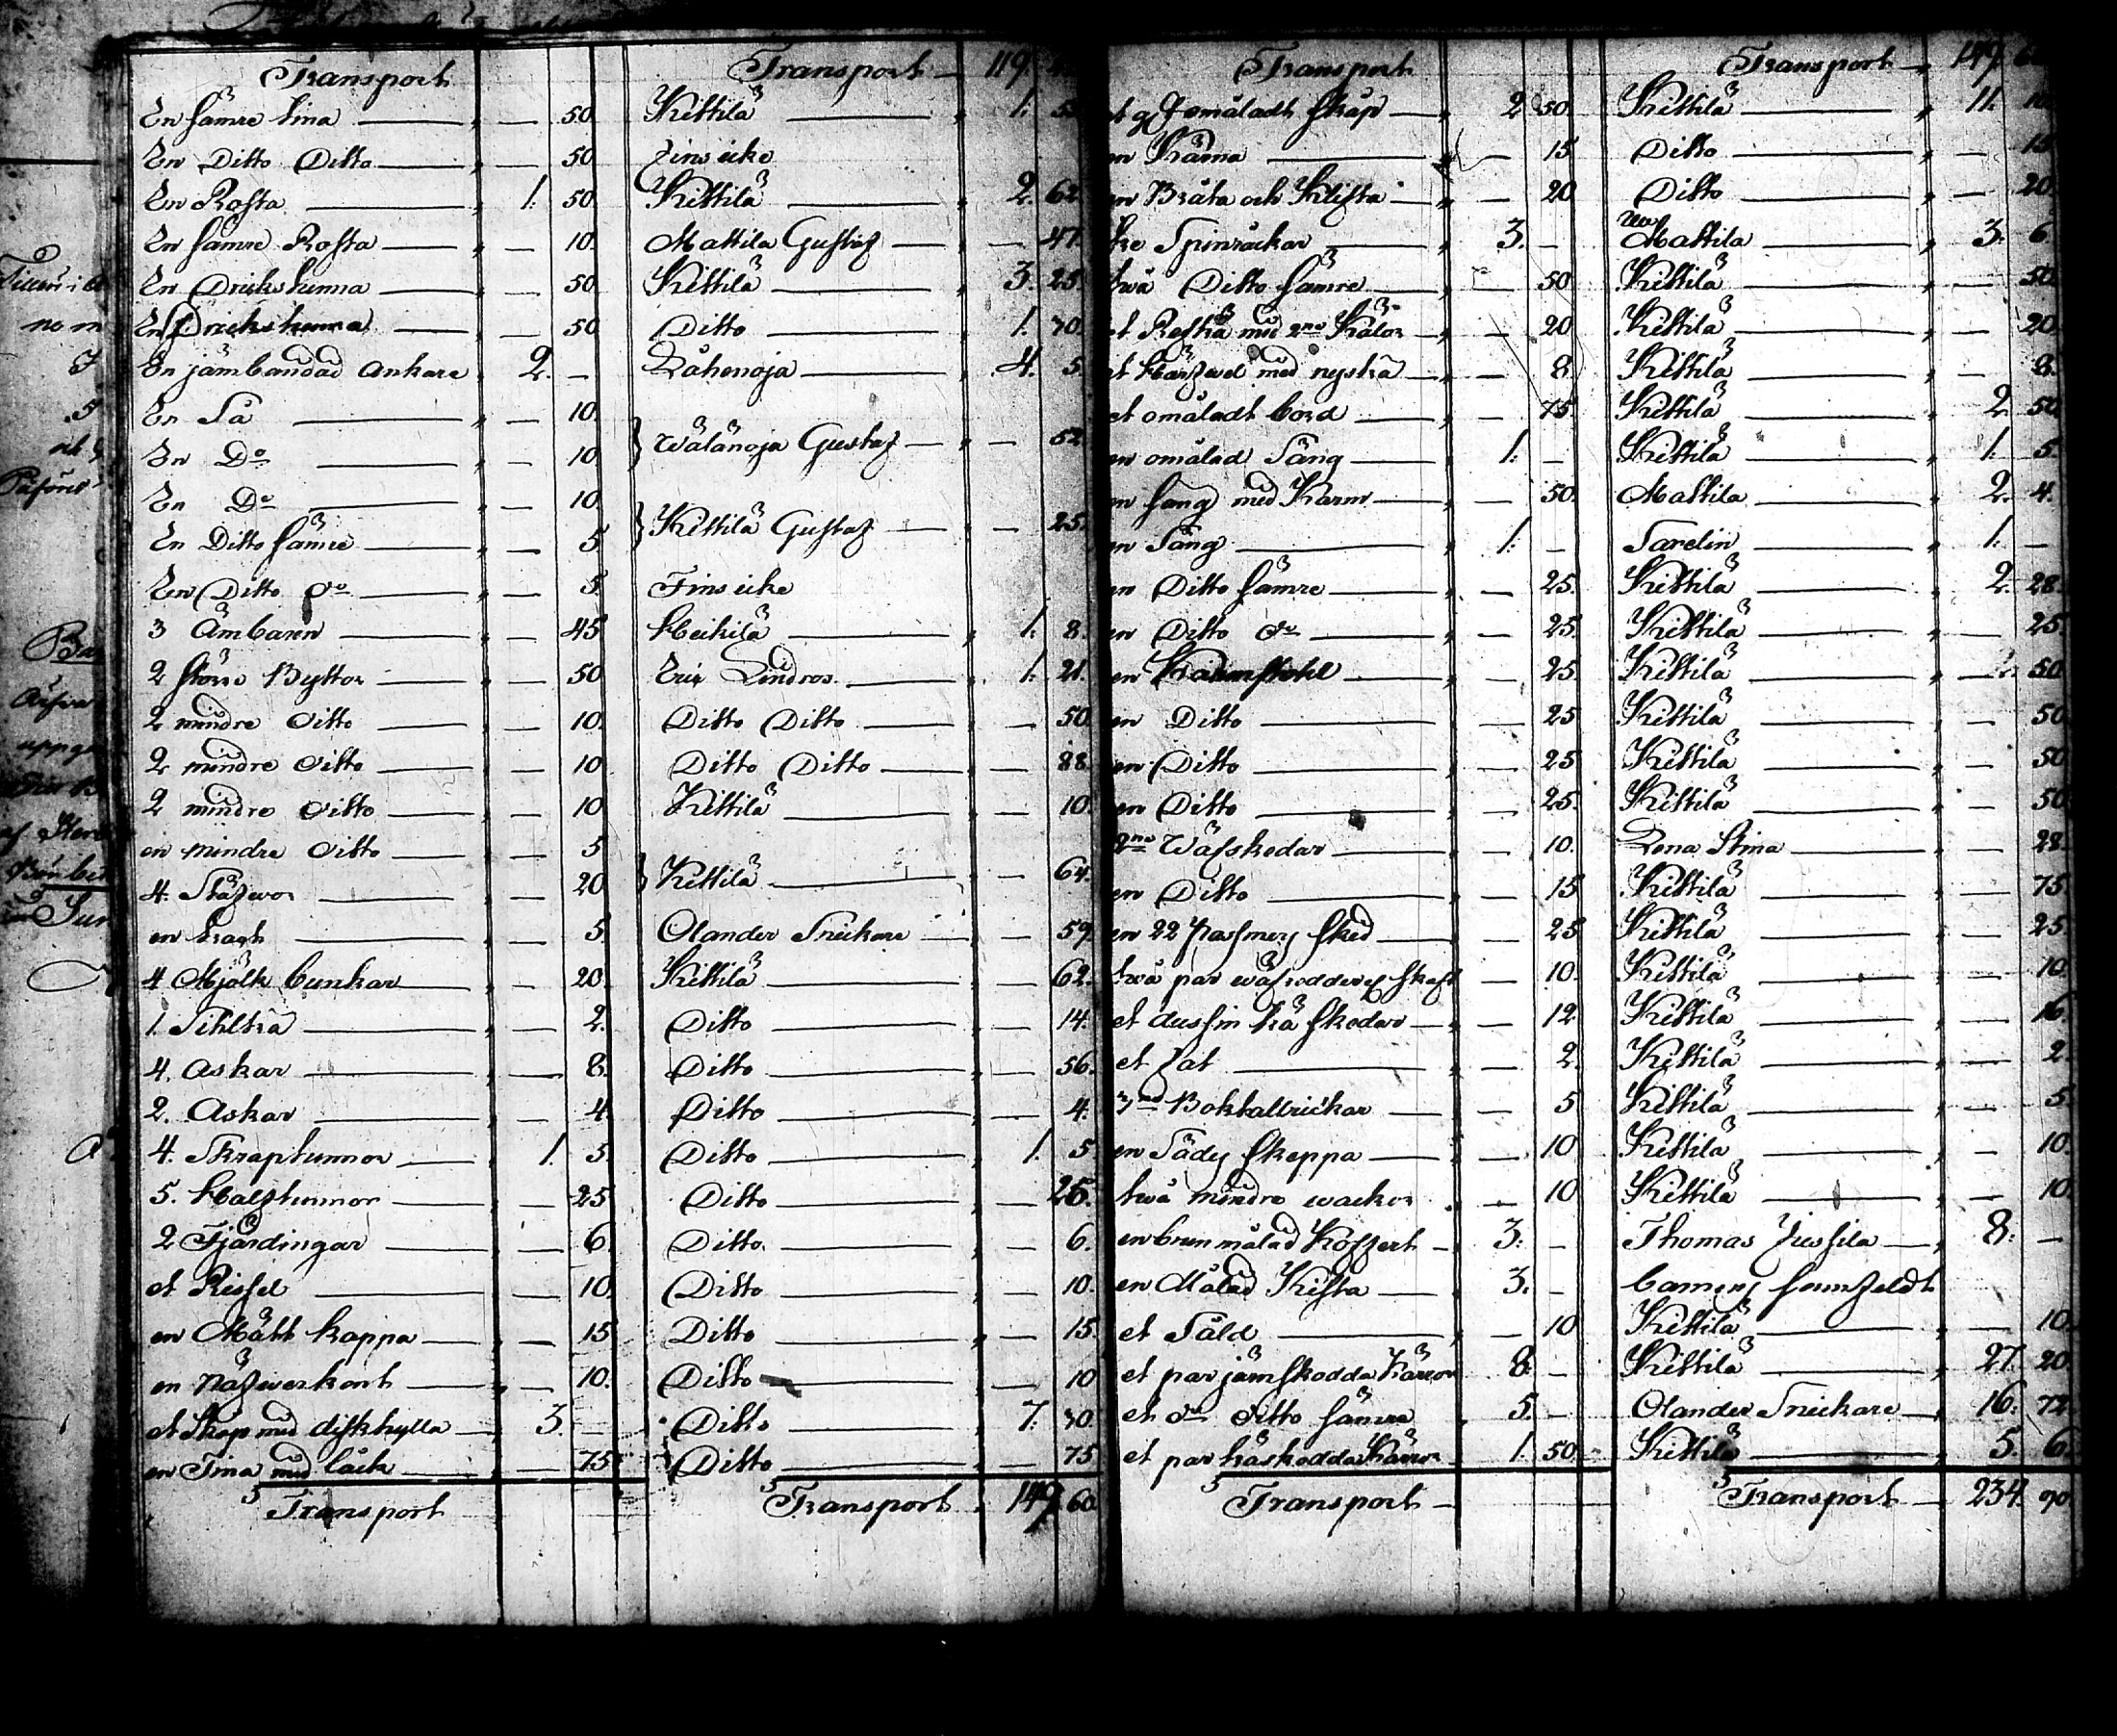 Transport Transport 119.
En sämre tina 50. Kittilä 1.
En Ditto Ditto 50 Fins icke
En Rosta 1. 50. Kittilä 2. 62.
En sämre Rosta 10. Mattila Gustaf 47.
En Drickstunna 50. Kittilä 3. 25.
En Drickskanna 50 Ditto 1. 70.
En järnbandad ankare 2. Lähenoja 4. 5.
En Så 10.
En Do 10 Wälänoja Gustaf 52
En Do 10
En Ditto sämre 5 Kittilä Gustaf 25.
En Ditto do 5 Fins icke
3 Ämbaren 45 Heikilä 1. 8.
2 större Byttor 50 Eric Lindros 1. 21.
2 mindre Ditto 10. Ditto Ditto 50.
2 mindre Ditto 10 Ditto Ditto 88.
2 mindre Ditto 10 Kittilä 10.
en mindre Ditto 5
4. Stäfwor 20 Kittilä 64.
en tratt 5. Olander Snickare 59
4 Mjölk bunkar 20. Kittilä 62.
1. 2. Ditto 14.
4. Askar 8. Ditto 56.
2. Askar 4. Ditto 4.
4. Skraptunnor 1. 5. Ditto 1. 5
5. Halftunnor 25 Ditto 25.
2 Fjärdingar 6. Ditto 6.
et Rissel 10. Ditto 10.
en Mått kappa 15 Ditto 15.
en Näfwerkont 10. Ditto 10
et Skåp med diskhylla 3. Ditto 7. 70.
en Tina med låck 75. Ditto 75
Transport Transport 149 60.
Transport Transport 149
omåladt skåp 2 50. Kittilä 11.
en Kärna 15 Ditto 15
en Bråka och Klifta 20 Ditto 20.
Spinråckar 3. Mattila 3. 6.
twå Ditto sämre 50 Kittilä 50.
20 Kittilä 20.
et Härfwel med nysta 8. Kittilä 8.
et omåladt bord 75. Kittilä 2. 50.
en omålad Säng 1. Kittilä 1. 5.
en säng med Karm 50. Mattila 2. 4.
en Säng 1. Sarelin 1.
en Ditto sämre 25. Kittilä 2. 28.
en Ditto do 25. Kittilä 25.
en Karmstohl 25 Kittilä 50.
en Ditto 25 Kittilä 50
en Ditto 25 Kittilä 50
en Ditto 25. Kittilä 50
2ne Wäfskedar 10. Lena Stina 28.
en Ditto 15 Kittilä 75.
en 22 pasmers sked 25 Kittilä 25.
twå par skaft 10. Kittilä 10.
et dussin trä skedar 12 Kittilä 16.
et fat 2. Kittilä 2.
5 Kittilä 5.
en Sädes skeppa 10 Kittilä 10.
twå mindre wackor 10 Kittilä 10.
en brun målad Koffert 3. Thomas Jussila 8.
en Målad Kista 3. barnens samfeldt
et Såld 10 Kittilä 10.
et par järnskodda Kärror 8. Kittilä 27. 20
et do Ditto sämre 5. Olander Snickare 16. 72.
et par träskodda Kärror 1. 50. Kittilä 5. 6.
Transport Transport 234. 70.